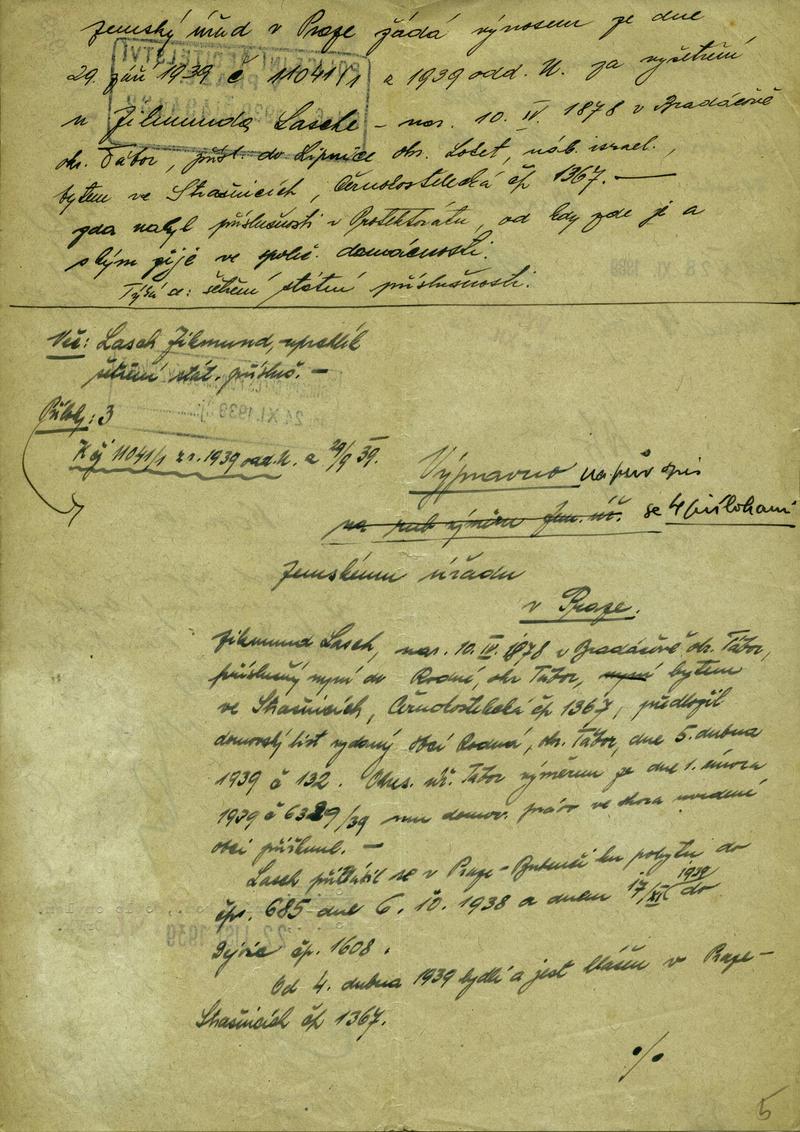 Zemský úřad v Praze žádá výnosem ze dne
29. září 1939 č 11041/1 a 1939 odd. II. za vyšetření
u Zikmunda Lasche – nar. 10. IV. 1878 v Bradáčově
okr. Tábor, přísl. do Lipnice okr. Loket, náb. israel.,
bytem ve Strašnicích, Černokostelecká čp 1367. —
zda nabyl příslušnosti v Protektorátu, od kdy zde je a
s kým žije ve společ. domácnosti.
Týká se: šetření státní příslušnosti.
Věc: Lasch Zikmund,
šetření stát. přísluš. —
Příloh: 3
K čj 11041/1 z r. 1939 odd. II. a 29/9 39.
Výpravno na pův spis
na rub výměru zem. úř. se 4 přílohami
Zemskému úřadu
v Praze.
Zikmund Lasch, nar. 10. IV. 1878 v Bradáčově okr. Tábor,
příslušný nyní do Rodné, okr Tábor, bytem
ve Strašnicích, Černokostelecká čp 1367, předložil
domovský list vydaný obcí Rodná, okr. Tábor, dne 5. dubna
1939 č 132. Okres. úř. Tábor výměrem ze dne 1. února
1939 č 6329/39 mu domov. právo ve shora uvedené
obci přiřknul. —
Lasch přihlásil se v Praze-Bubenči ku pobytu do
čp. 685 dne 6. 10. 1938 a dnem 17/XI 1938 do
Dejvic čp. 1608.
Od 4. dubna 1939 bydlí a jest hlášen v Praze –
Strašnicích čp 1367.
./.
5